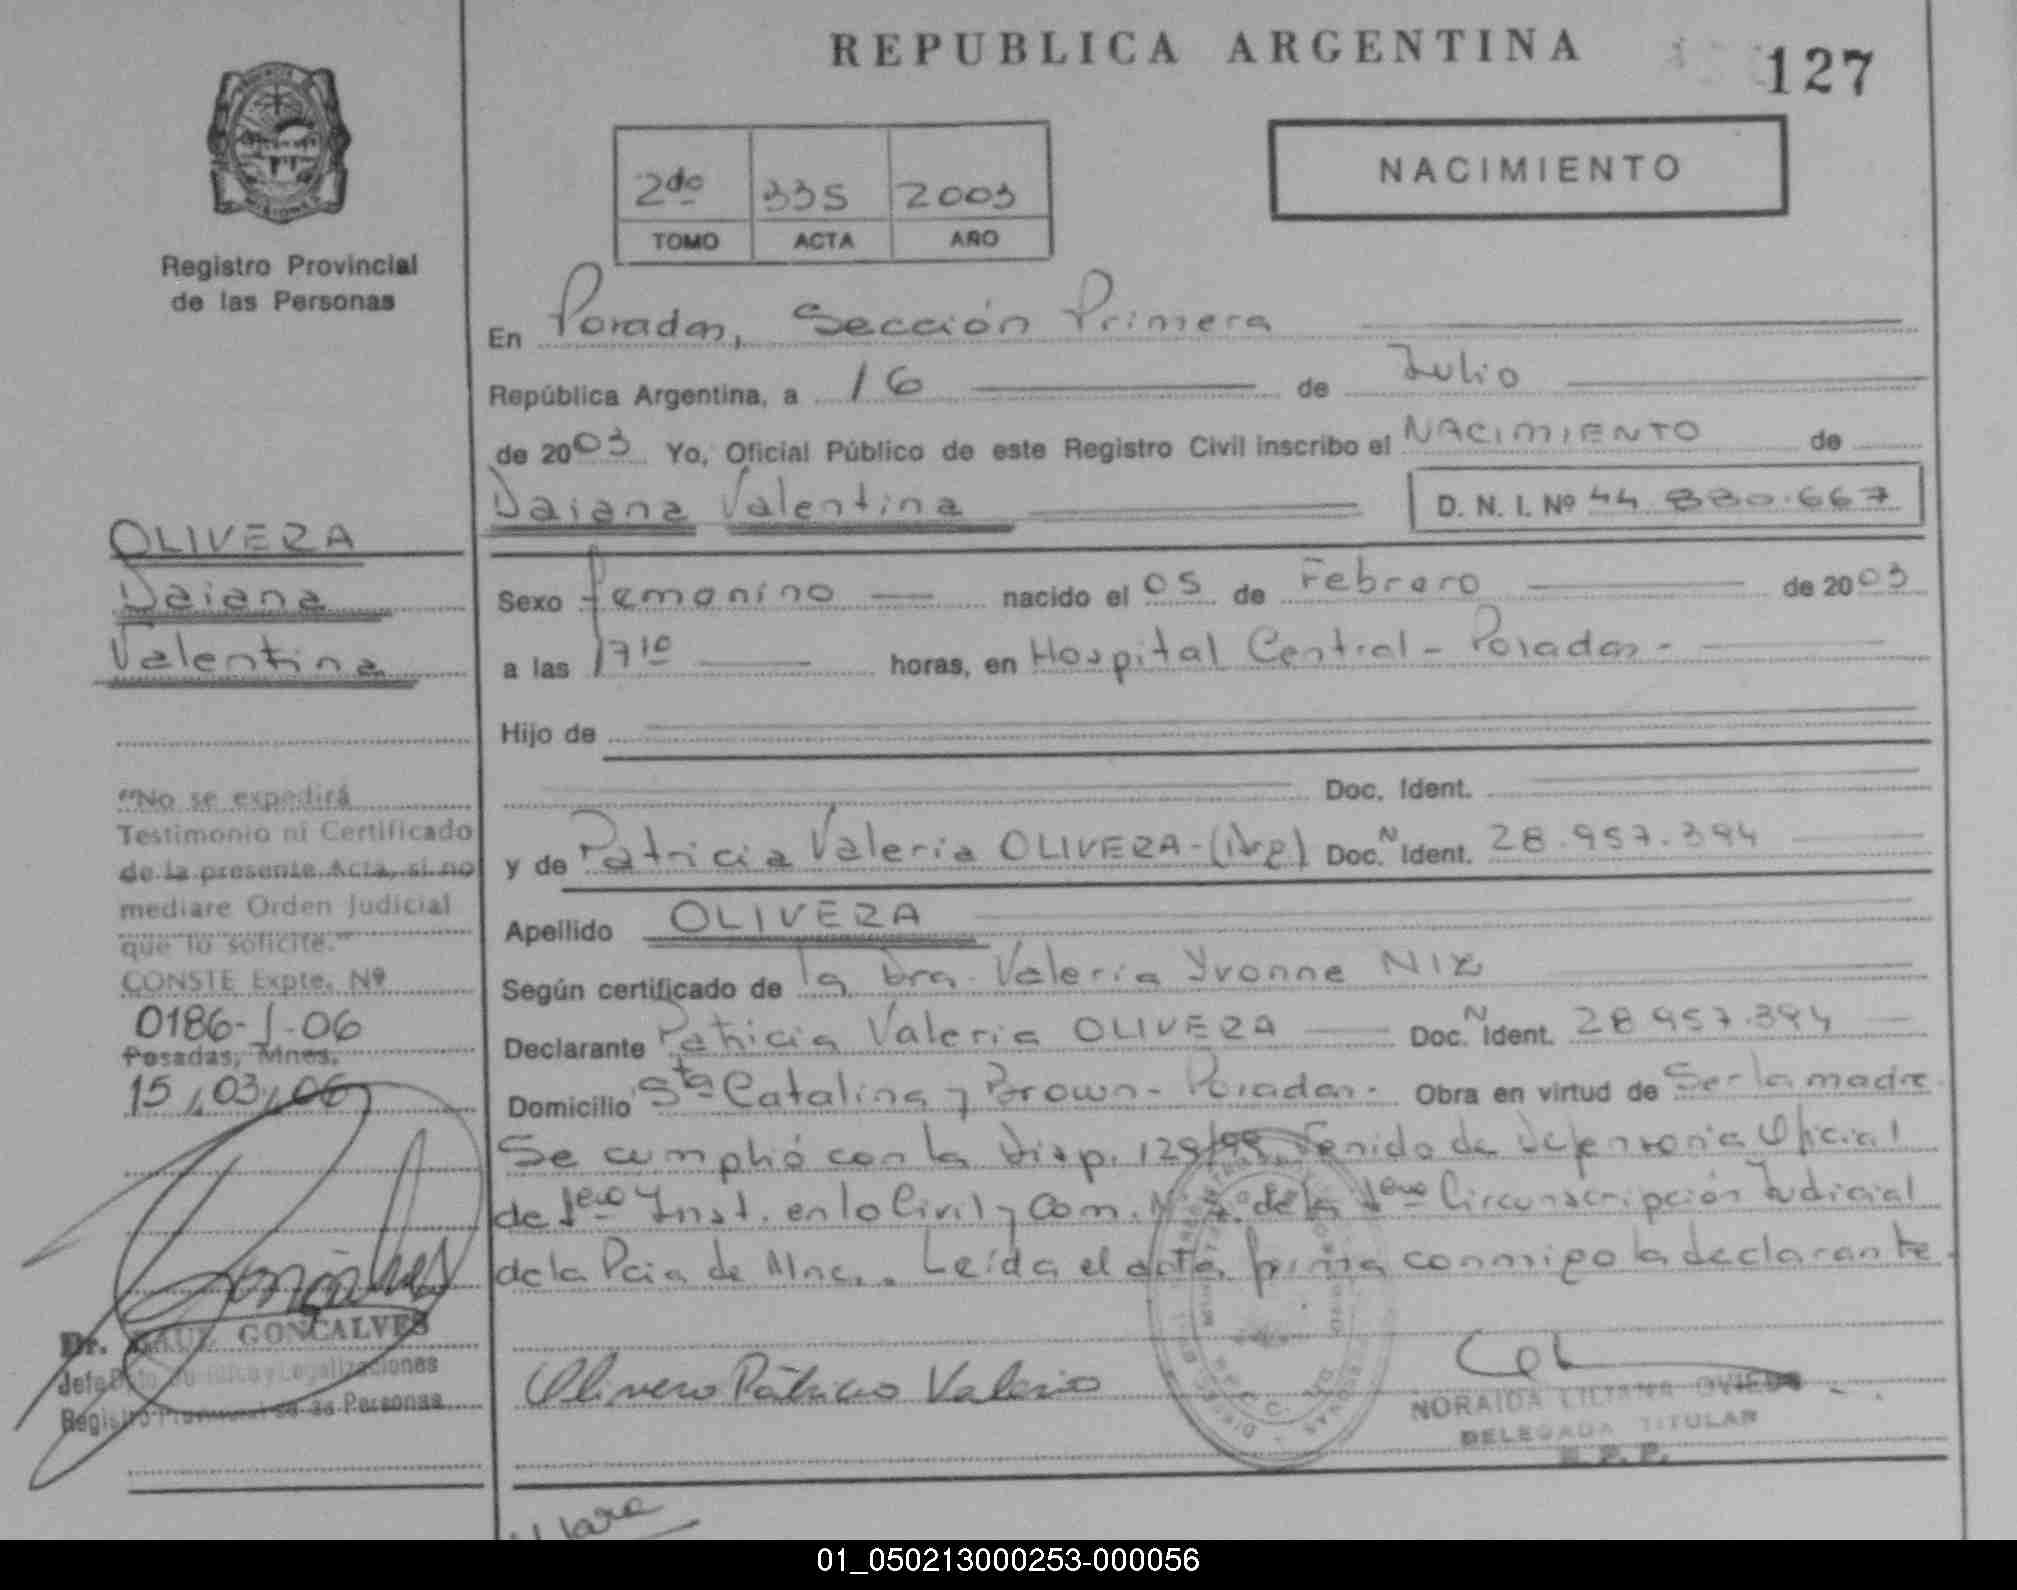 REPUBLICA ARGENTINA
127
NACIMIENTO
2do 335 2003
TOMO ACTA AÑO
Registro Provincial
de las Personas
En Posadas, Sección Primera
República Argentina, a 16 de Julio
de 2003 Yo, Oficial Público de este Registro Civil inscribo el NACIMIENTO de
Daiana Valentina D. N. I. Nº 44.880.667
OLIVERA
Daiana
Valentina
Sexo femenino nacido el 05 de Febrero de 2003
a las 17 10 horas, en Hospital Central - Posadas -
Hijo de
Doc. Ident.
y de Patricia Valeria OLIVERA - (Arg) Doc. N Ident. 28.957.394
Apellido OLIVERA
Según certificado de la Dra. Valeria Yvonne
Declarante Patricia Valeria OLIVERA Doc. N Ident. 28.957.394
Domicilio Sta Catalina y Brown - Posadas - Obra en virtud de Ser la madre.
Se cumplió con la Disp. 129/99. Venido de Defensoria Oficial
de 1era Inst. en lo Civil y Com. de la 1era Circunscripción Judicial
de la Pcia de Mnes. Leída el acta, firma conmigo la declarante.
"No se expedirá
Testimonio ni Certificado
de la presente Acta, si no
mediare Orden Judicial
que lo solicite."
CONSTE Expte. Nº
0186-J-06
Posadas, Mnes,
15,03,06
Dr. RAUL GONCALVES
Jefe Dpto Jurídico y Legalizaciones
Registro Provincial de las Personas
Olivera Patricia Valeria
NORAIDA LILIANA OVIEDO
DELEGADA TITULAR
R. P. P.
01_050213000253-000056